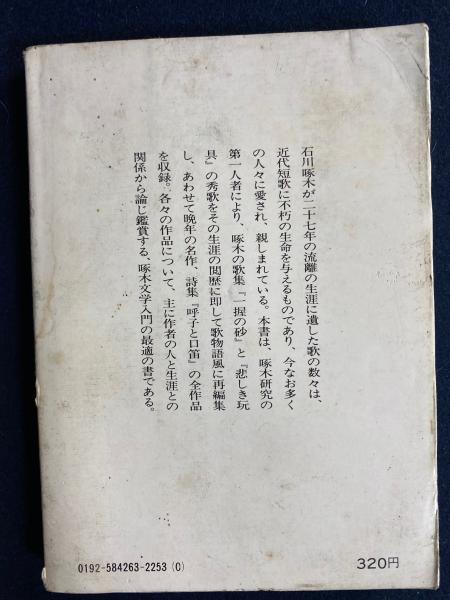 石川啄木が二十七年の流離の生涯に遺した歌の数々は、
近代短歌に不朽の生命を与えるものであり、今なお多く
の人々に愛され、親しまれている。本書は、啄木研究の
第一人者により、啄木の歌集『一握の砂』と『悲しき玩
具』の秀歌をその生涯の閲歴に即して歌物語風に再編集
し、あわせて晩年の名作、詩集『呼子と口笛』の全作品
を収録。各々の作品について、主に作者の人と生涯との
関係から論じ鑑賞する、啄木文学入門の最適の書である。
0192-584263-2253(0)
320円